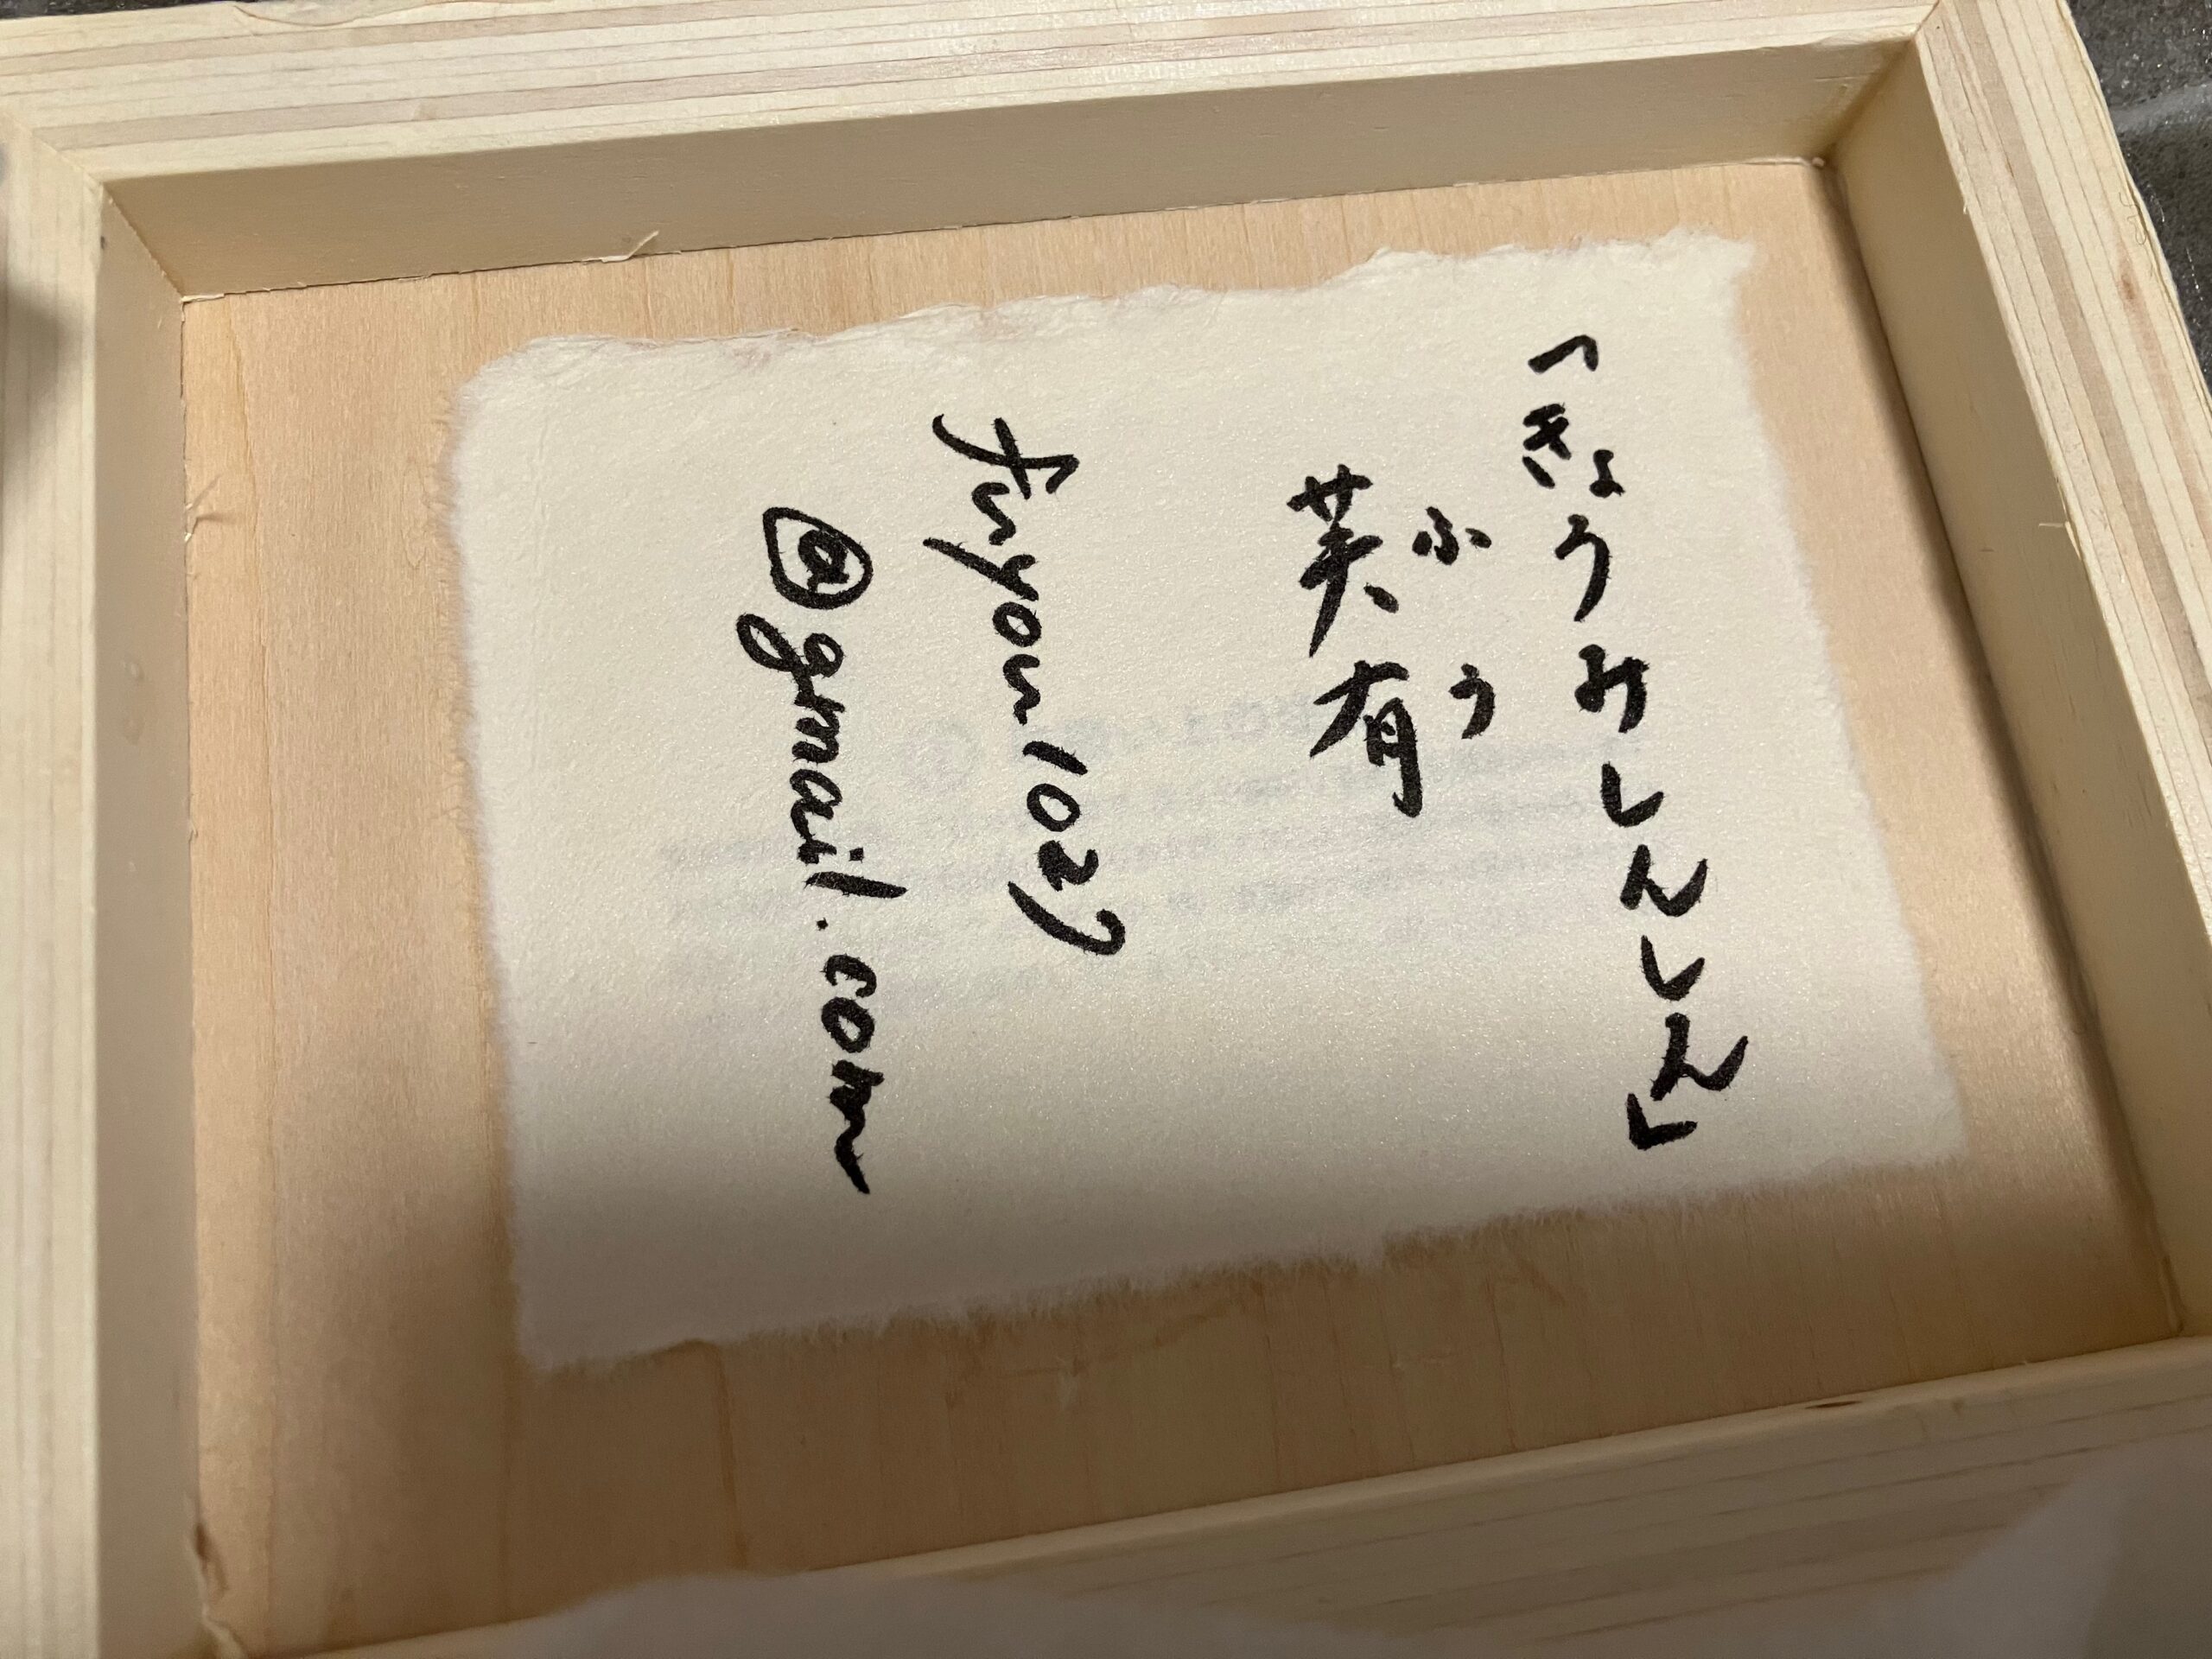 「きょうみしんしん」
ふう
芙有
fuyou1027
@gmail.com